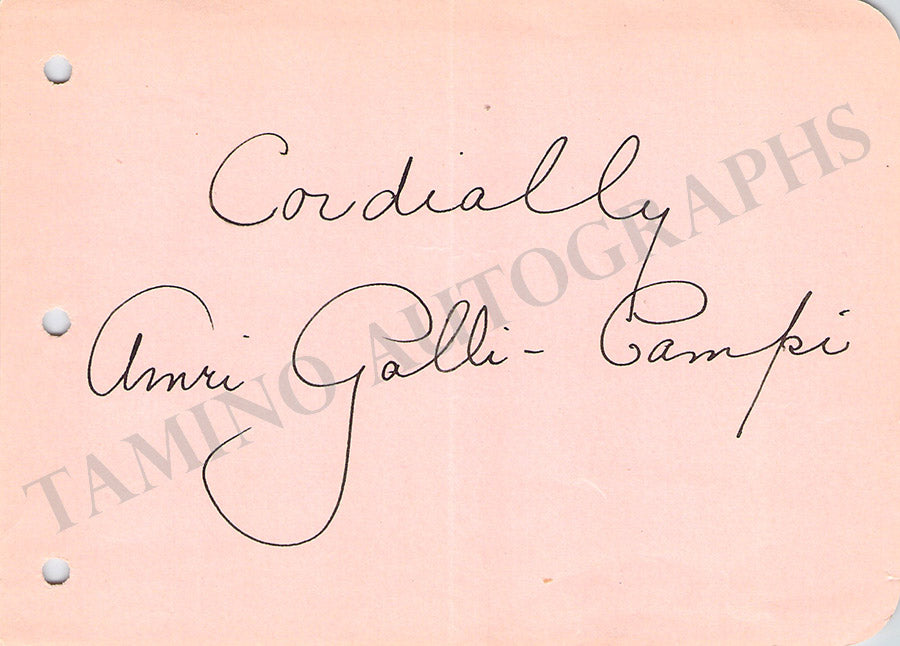 Cordially
Amri Galli-Campi
TAMINO AUTOGRAPHS